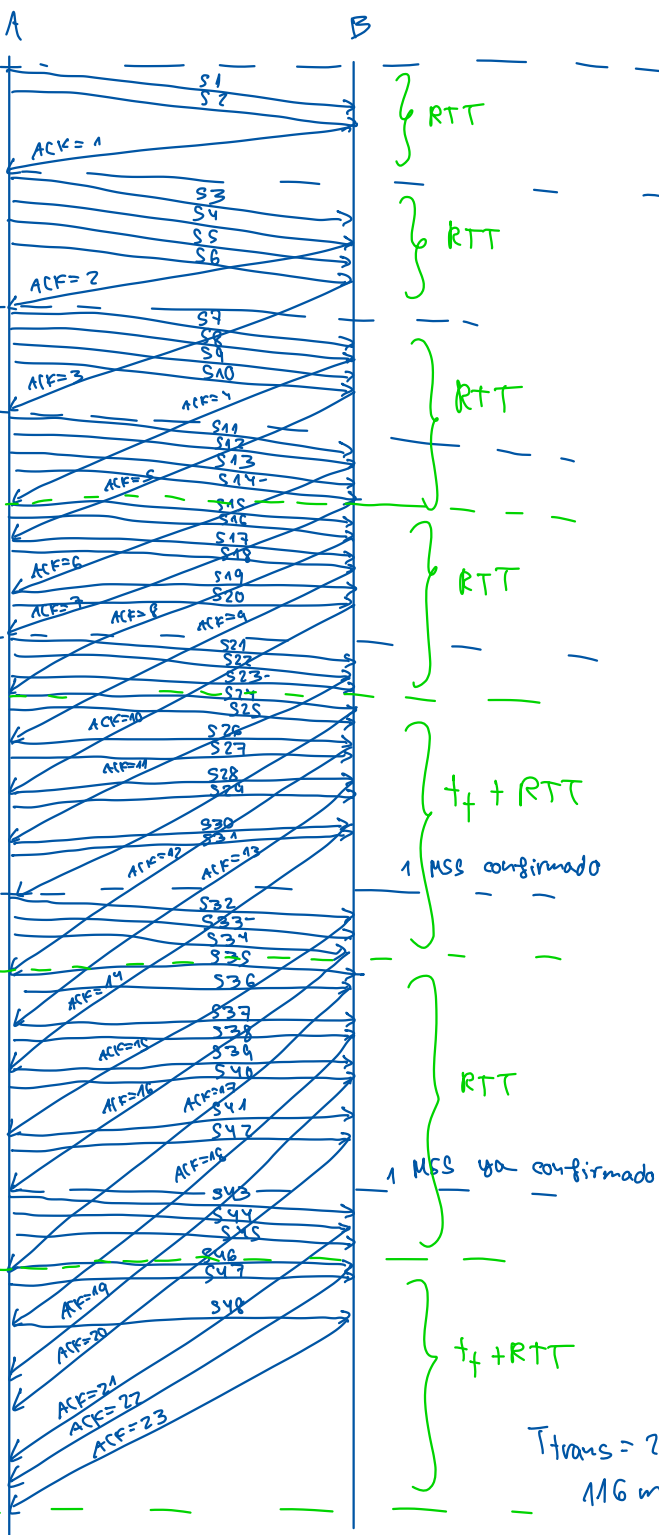 A B
S1
S2
RTT
ACK=1
S3
S4
S5
S6
RTT
ACK=2
S7
S8
S9
S10
ACK=3
ACK=4
RTT
S11
S12
S13
S14
ACK=5
S15
S16
S17
S18
ACK=6
S19
S20
RTT
ACK=7
ACK=8
ACK=9
S21
S22
S23
S24
S25
ACK=10
S26
S27
ACK=11
S28
S29
tf + RTT
S30
S31
ACK=12
ACK=13
1 MSS confirmado
S32
S33
S34
S35
S36
ACK=14
S37
S38
ACK=15
S39
S40
RTT
ACK=16
ACK=17
S41
S42
ACK=18
1 MSS ya confirmado
S43
S44
S45
S46
S47
ACK=19
S48
ACK=20
tf + RTT
ACK=21
ACK=22
ACK=23
Ttrans = 2
116 m